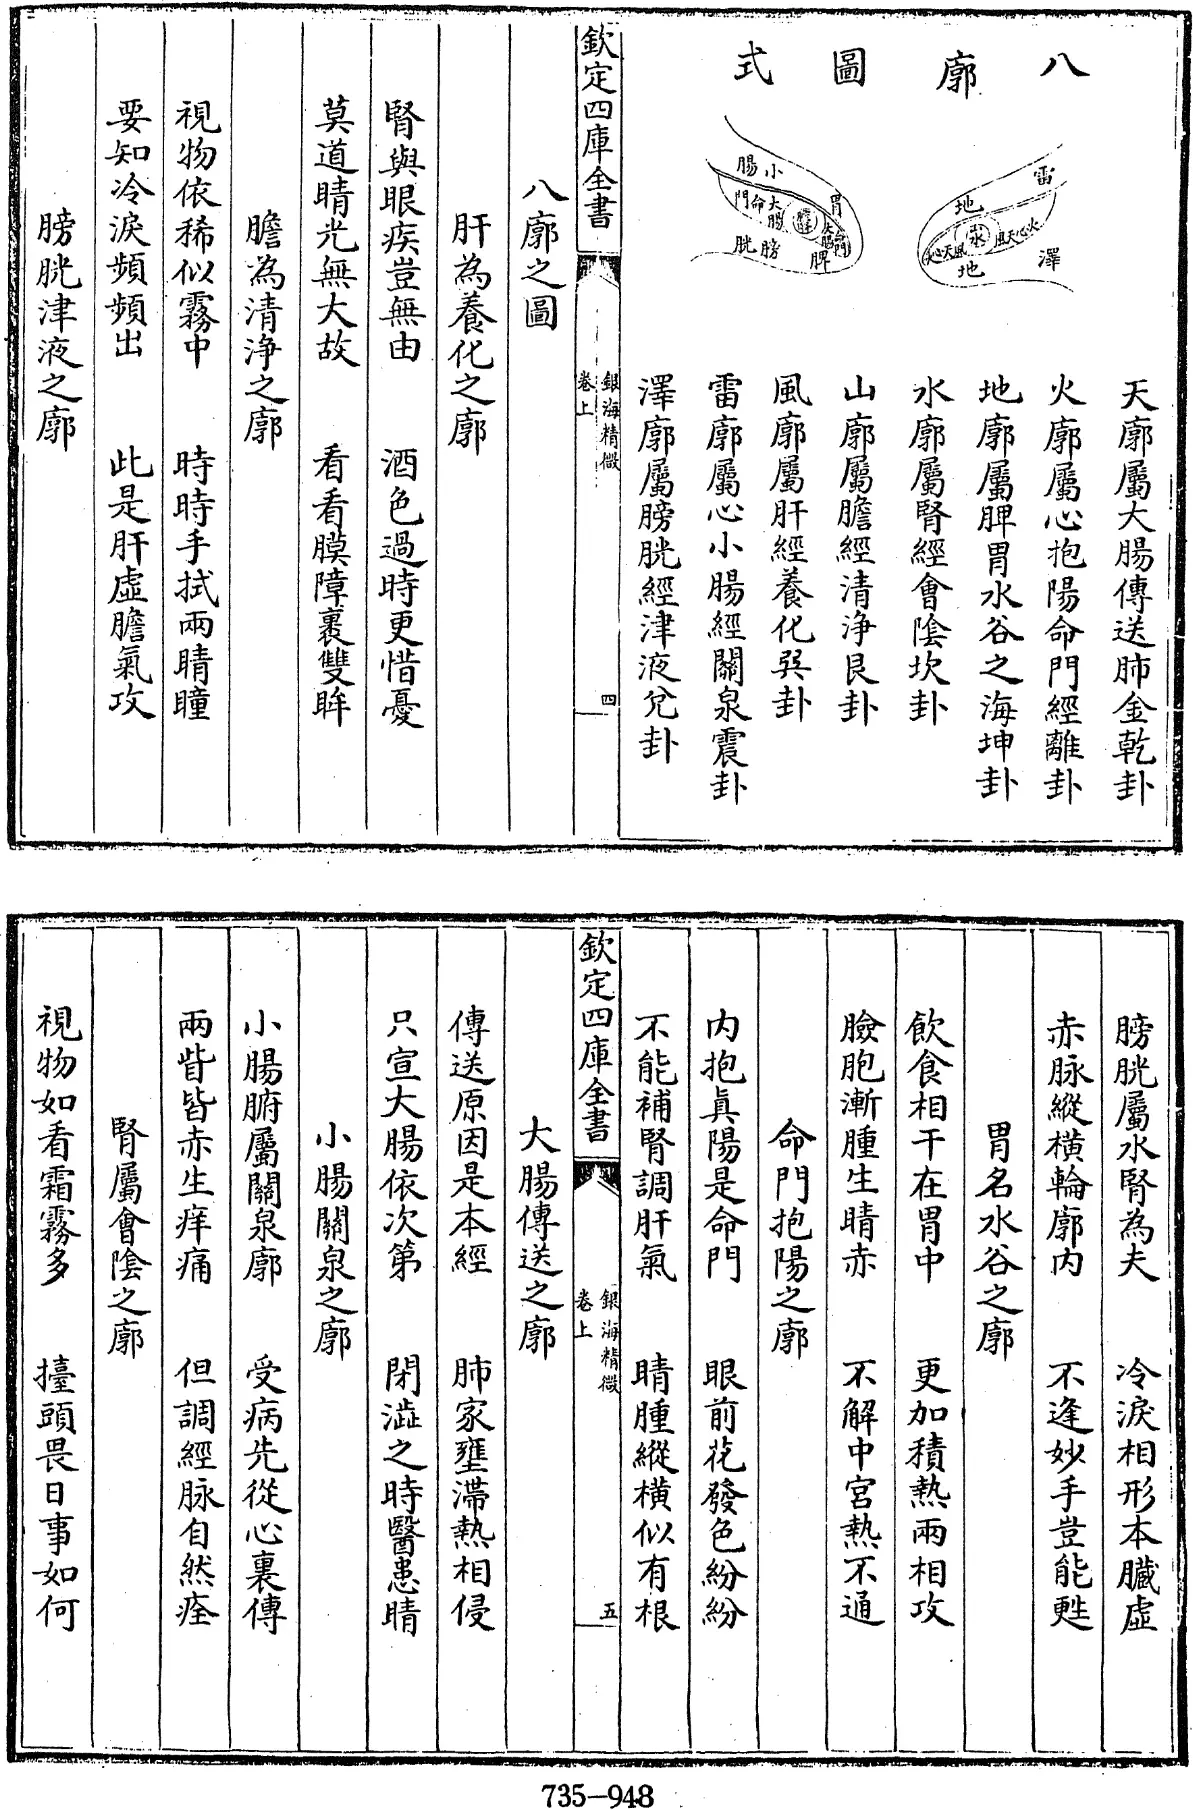 八廓圖式
雷
地
澤
地
火心天風
山水
風天心火
小腸
胃
大腸
命門
膀胱
脾
天廓屬大腸傳送肺金乾卦
火廓屬心抱陽命門經離卦
地廓屬脾胃水谷之海坤卦
水廓屬腎經會陰坎卦
山廓屬膽經清淨艮卦
風廓屬肝經養化巽卦
雷廓屬心小腸經關泉震卦
澤廓屬膀胱經津液兌卦
欽定四庫全書
銀海精微
卷上
四
八廓之圖
肝為養化之廓
腎與眼疾豈無由 酒色過時更惜憂
莫道睛光無大故 看看膜障裹雙眸
膽為清淨之廓
視物依稀似霧中 時時手拭兩睛瞳
要知冷淚頻頻出 此是肝虛膽氣攻
膀胱津液之廓
膀胱屬水腎為夫 冷淚相形本臟虛
赤脉縱橫輪廓内 不逢妙手豈能甦
胃名水谷之廓
飲食相干在胃中 更加積熱兩相攻
臉胞漸腫生睛赤 不解中宮熱不通
命門抱陽之廓
内抱眞陽是命門 眼前花發色紛紛
不能補腎調肝氣 睛腫縱橫似有根
欽定四庫全書
銀海精微
卷上
五
大腸傳送之廓
傳送原因是本經 肺家壅滯熱相侵
只宣大腸依次第 閉澁之時醫患睛
小腸關泉之廓
小腸腑屬關泉廓 受病先從心裏傳
兩眥皆赤生痒痛 但調經脉自然痊
腎屬會陰之廓
視物如看霜霧多 擡頭畏日事如何
735-948